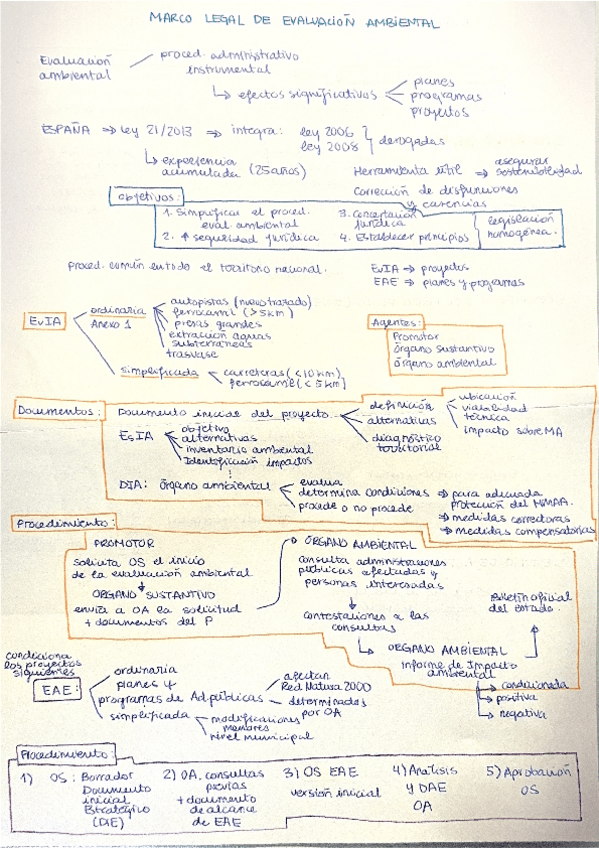 MARCO LEGAL DE EVALUACIÓN AMBIENTAL
Evaluación ambiental
proced. administrativo instrumental
↳ efectos significativos
planes
programas
proyectos
ESPAÑA ⇒ ley 21/2013 ⇒ integra: ley 2006
ley 2008
derogadas
↳ experiencia acumulada (25 años)
Herramienta útil ⇒ asegurar sostenibilidad
Corrección de disfunciones y carencias
Objetivos:
1. Simplificar el proced. eval. ambiental
2. ↑ seguridad jurídica
3. Concertación jurídica
4. Establecer principios
legislación homogénea.
Proced. común en todo el territorio nacional.
EvIA ⇒ proyectos
EAE ⇒ planes y programas
EvIA
ordinaria
Anexo 1
autopistas (nuevo trazado)
ferrocarril (>5km)
presas grandes
extracción aguas subterráneas
trasvase
simplificada
carreteras (<10km)
ferrocarril (<5km)
Agentes:
Promotor
órgano sustantivo
órgano ambiental
Documentos:
Documento inicial del proyecto
definición
alternativas
diagnóstico territorial
ubicación
viabilidad técnica
impacto sobre MA
EsIA
objetivo
alternativas
inventario ambiental
Identificación impactos
DIA: órgano ambiental
evalua
determina condiciones
procede o no procede
⇒ para adecuada protección del MMAA.
⇒ medidas correctoras
⇒ medidas compensatorias
Procedimiento:
PROMOTOR
solicita OS el inicio
de la evaluación ambiental
↓ ORGANO SUSTANTIVO
envía a OA la solicitud
+ documentos del P
ÓRGANO AMBIENTAL
consulta administraciones
públicas afectadas y
personas interesadas
↓
contestaciones a las
consultas
↳ ORGANO AMBIENTAL
Informe de Impacto
ambiental
condicionada
positiva
negativa
Boletín oficial
del Estado.
condiciona
los proyectos
siguientes
EAE:
ordinaria
planes y
programas de Ad. públicas
afectan Red Natura 2000
determinados por OA
simplificada
modificaciones menores
nivel municipal
Procedimiento:
1) OS: Borrador
Documento
inicial
Estratégico
(DIE)
2) OA. consultas
previas
+ documento
de alcance
de EAE
3) OS EAE
versión inicial
4) Análisis
y DAE
OA
5) Aprobación
OS